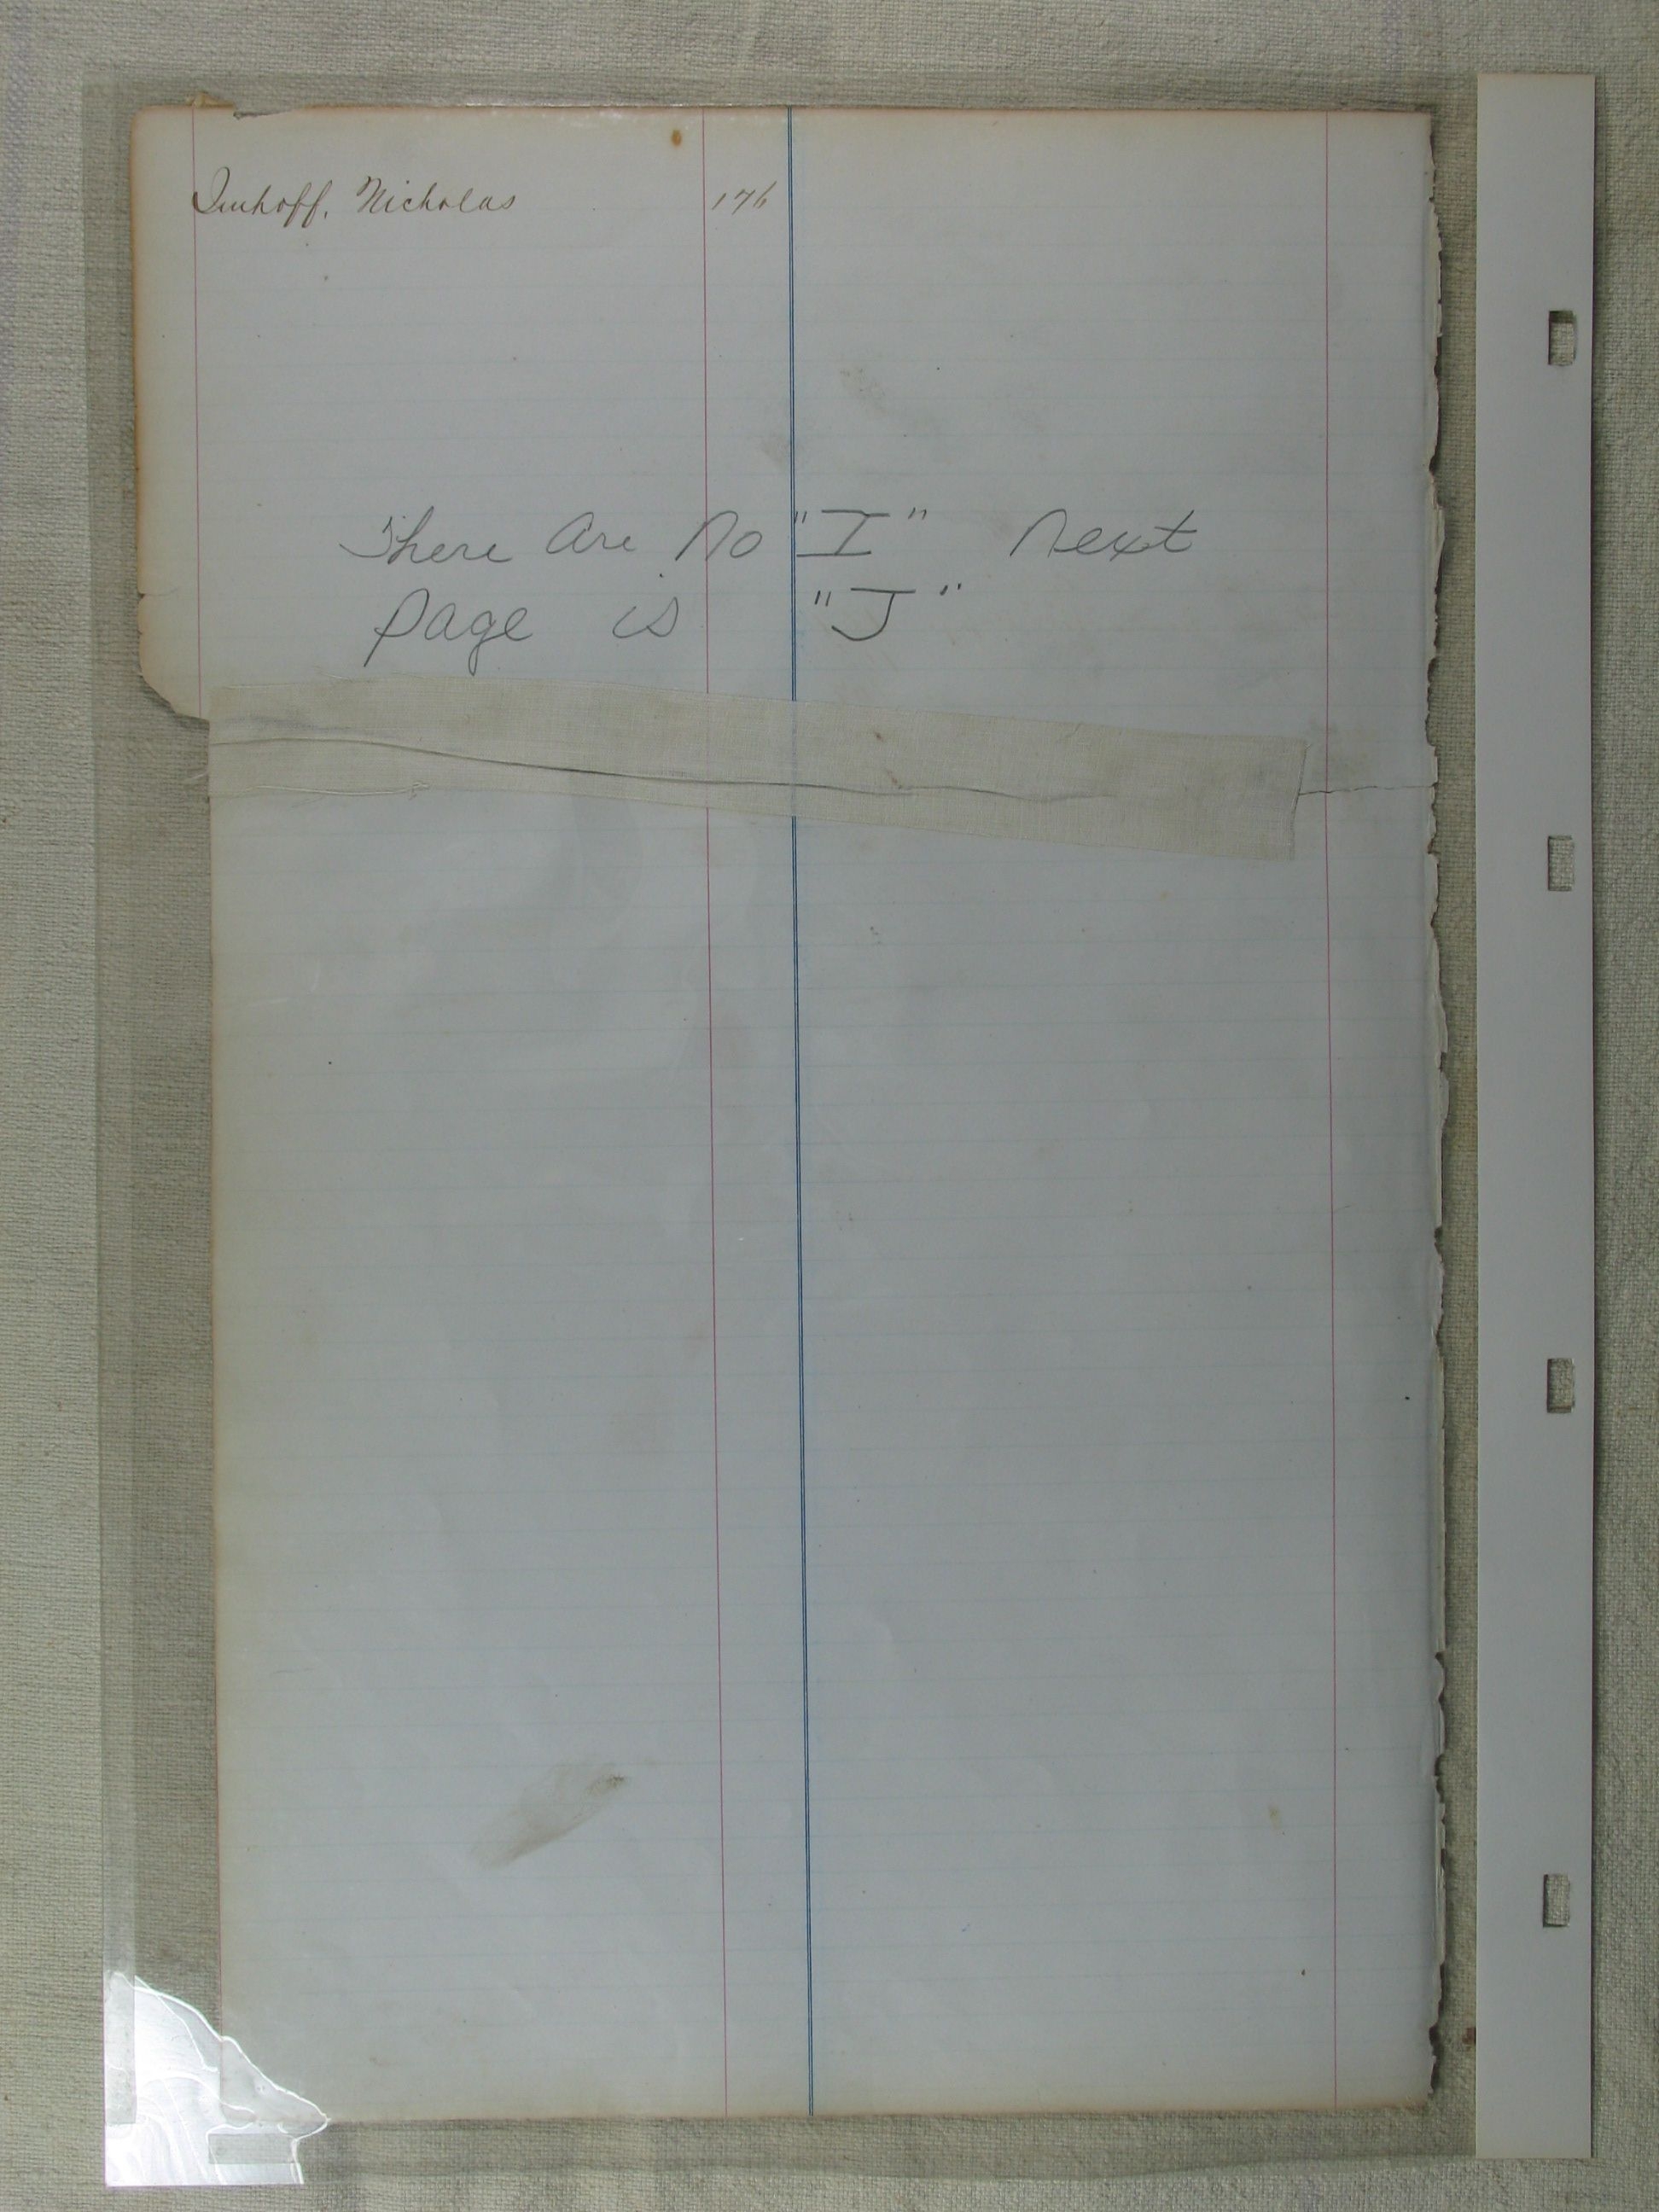 Imhoff, Nicholas 176
There are no "I" next
page is "J"